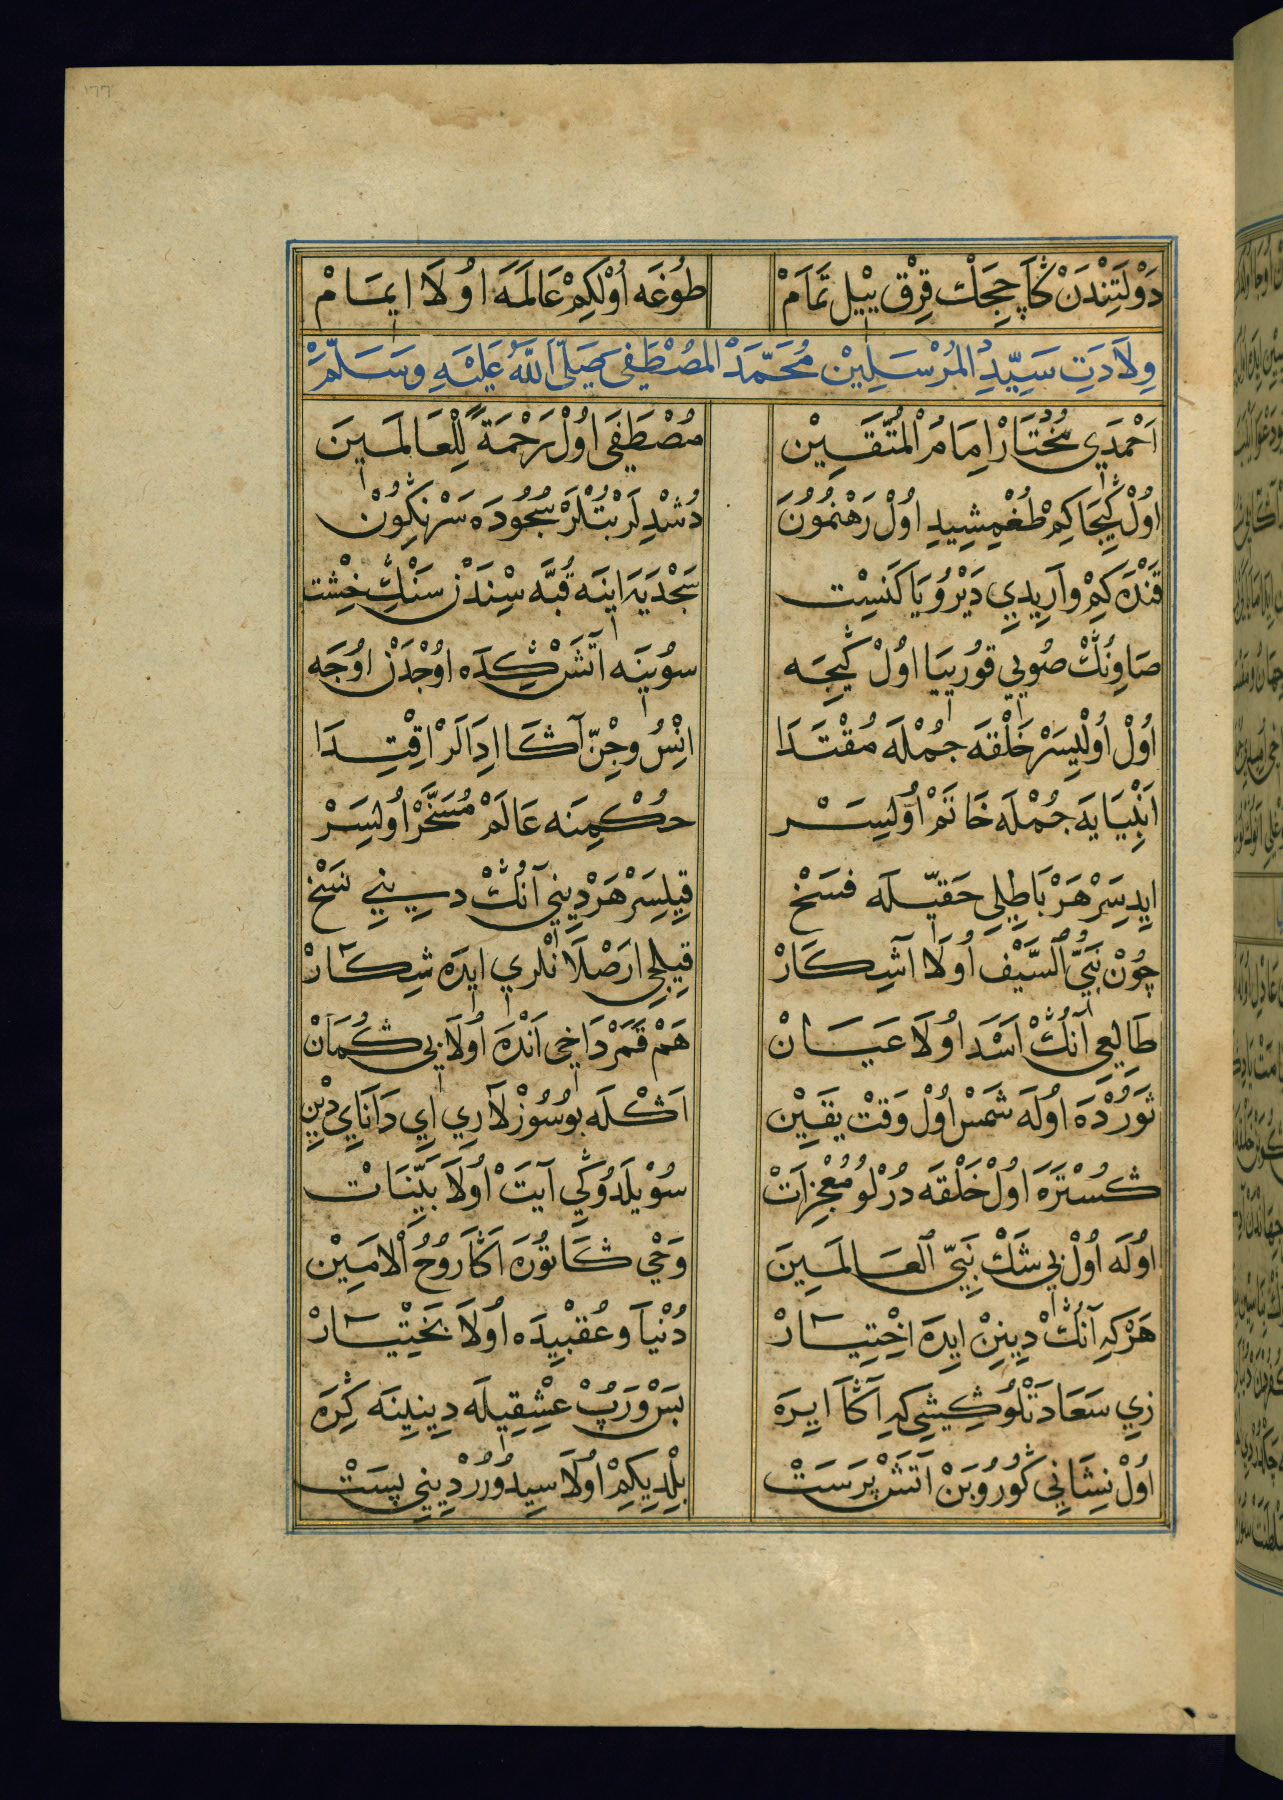 دَوْلَتِنْدَنْ كٰٓاچِجَكْ قِرْقْ يِيْل تَمَامْ طُوغَه اُوْلكِمْ عَالَمَه اُولَا اِيمَامْ
وِلَادَتِ سَيِّدِ الْمُرْسَلِيْنْ مُحَمَّدْ الْمُصْطَفٰى صَلَّى اللّٰهُ عَلَيْهِ وَسَلَّمَ
اَحْمَدِي مُخْتَارْ اِمَامُ الْمُتَّقِيْن مُصْطَفٰى اُوْل رَحْمَةً لِلْعَالَمِينَ
اُوْل گِيجَاكِمْ طُغْمِشِيدِ اُوْل رَهْنُمُونْ دُشْدِلَرْ بُتْلَرْ سُجُودَه سَرْنِكُونْ
قَنْدَه كِمْ وارِيدِي دَيْرُ وُيَا كَنِسِت سَجْدَيَه اِينَه قُبَّه سِنْدَنْ سَنْكِ خِشت
صَاوِنُكْ صُويِي قورِييَا اُوْل گِيجَه سوُيِنَه آتَشْكِدَه اُوْجدَنْ اُوجَه
اُوْل اُوْلِيسَرْ خَلْقَه جُمْلَه مُقْتَدَا اِنْسُ وجِنّ آكَا اِدَالَرْ اِقْتِدَا
اَنْبِيَايَه جُمْلَه خَاتَمْ اُولِسَرْ حُكْمِنَه عَالَمْ مُسَخَّرْ اُولِسَرْ
ايِدِسَرْ هَرْ بَاطِلِي حَقِيلَه فسَخْ قِيلِسَرْ هَرْ دِينِي آنُكْ دِينِي نسَخْ
چُوْن نَبِيُّ السَّيْف اُولَا آشِكَارْ قِيلِجِي ارَصْلَانْلَرِي ايِدَه شِكَارْ
طَالِعِي آنُكْ اَسَدْ اُولَا عَيَانْ هَمْ قَمَرْ دَاخِي اَنْدَه اُولَا بِي كُمَانْ
ثَوُرْدَه اُولَه شَمْسْ اُوْل وَقتْ يَقِيْن اَكْلَه بوُ سُوُزْلَارِي اِي دَانَايِ دِيْن
كُسْتَرَه اُوْل خَلْقَه دُرْلُو مُعْجِزَاتْ سُوْيلَدُوكِي آيَتْ اُولَا بَيِّنَاتْ
اُولَه اُوْل بِي شَكْ نَبِيّ الْعَالَمِينَ وَحْيِ كَاتُورَه اَكَا رُوحُ الْاَمِيْن
هَرْكِه آنُكْ دِينِنْ ايِدَه اِخْتِيَارْ دُنْيَا وعُقبْيِدَه اُولَا بَخْتِيَارْ
زِي سَعَادَتْلُو كِشِي كِه اَكَا ايِرَه بَسْ وَرَپْ عِشْقِيلَه دِينِينَه كِرَه
اُوْل نِشَانِي كُورُوبَنْ آتَشْ پَرَسَتْ بِلْدِيكِمْ اُولَاسِيدُورُرْ دِينِي پَسَتْ